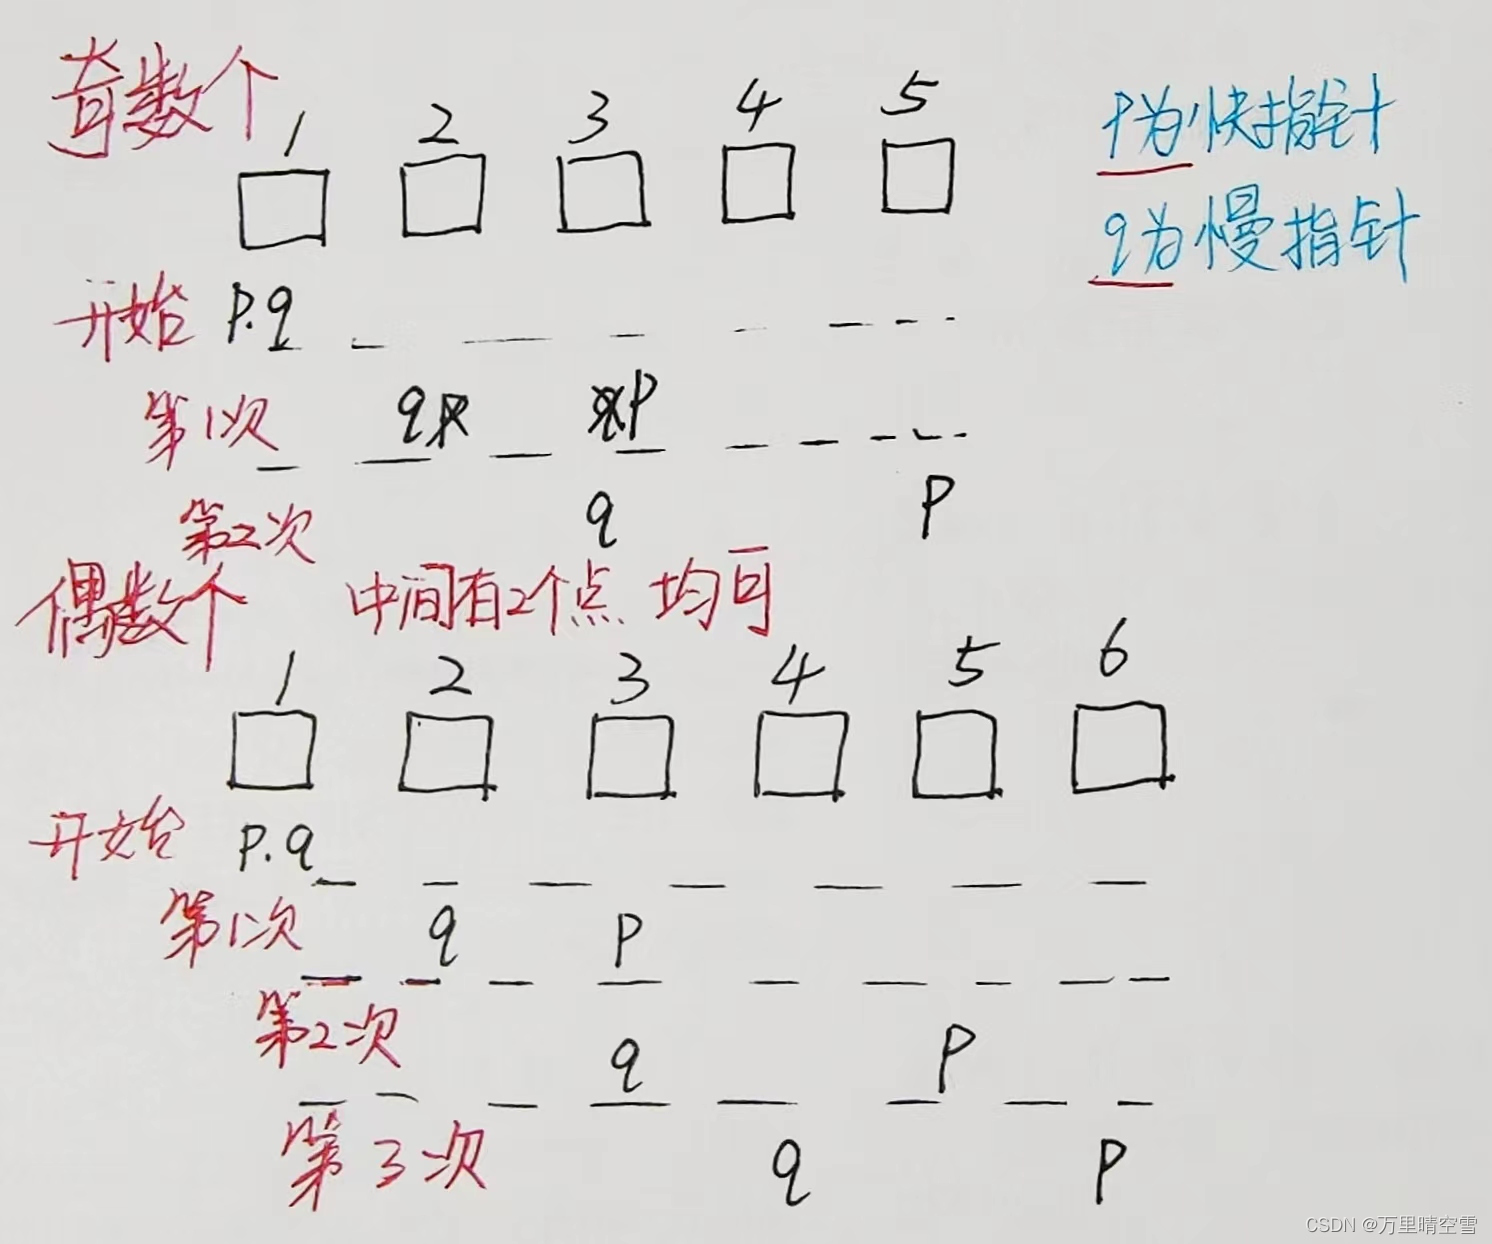 奇数个 1 2 3 4 5
p为快指针
q为慢指针
开始 p.q
第1次 q p
第2次 q p
偶数个 中间有2个点 均可
1 2 3 4 5 6
开始 p.q
第1次 q p
第2次 q p
第3次 q p
CSDN @万里晴空雪